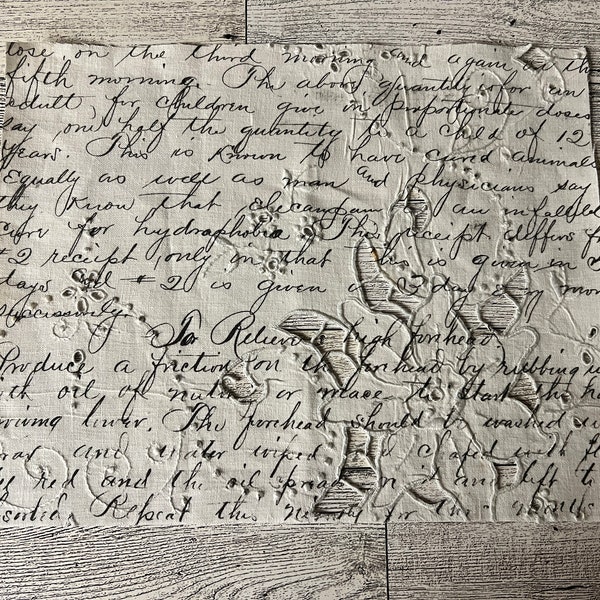 dose on the third morning and again on the
fifth morning. The above quantity is for an
adult, for children give in proportionate doses
say one half the quantity to a child of 12
years. This is known to have cured animals
Equally as well as man and physicians say
they know that elecampane an infallible
cure for hydrophobia. This receipt differs fr
#2 receipt only in that this is given in 5
days and #2 is given in 3 days or mor
successively.
To Relieve a high forehead.
Produce a friction on the forehead by rubbing
with oil of or mace to start the ha
liner. The forehead should be washed w
and water wiped and clad with fl
red and the oil spread on it and left to
Repeat this for the